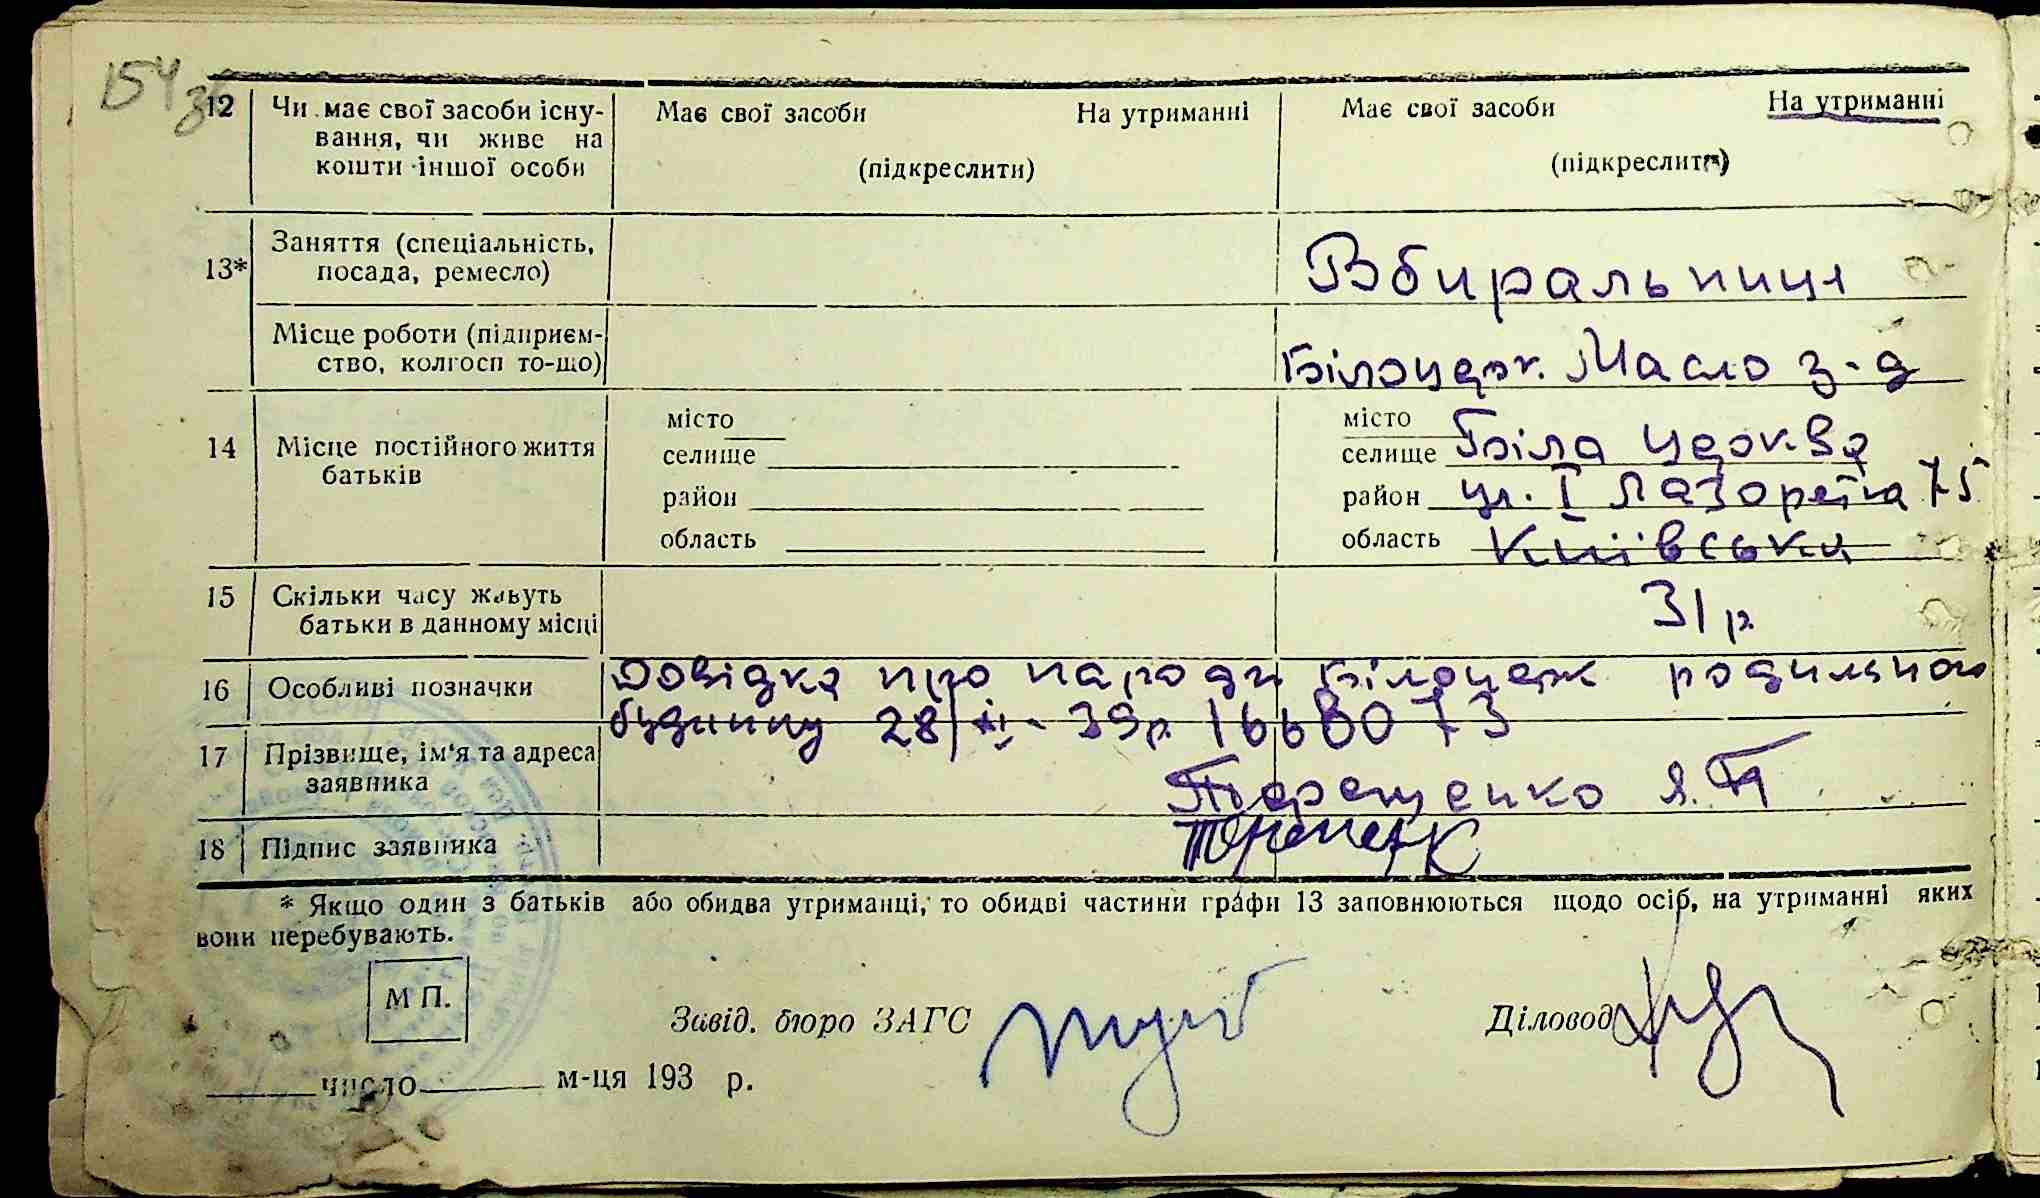 154 зв
12 Чи має свої засоби існу- Має свої засоби На утриманні Має свої засоби На утриманні
вання, чи живе на
кошти іншої особи (підкреслити) (підкреслити)
Заняття (спеціальність,
13* посада, ремесло) Вбиральниця
Місце роботи (підприєм-
ство, колгосп то-що) Білоцерк. Масло з-д
місто місто
14 Місце постійного життя селище селище Біла Церква
батьків
район район ул. І Лазаретна 75
область область Київська
15 Скільки часу живуть
батьки в данному місці 31 р.
16 Особливі позначки Довідка про народж Білоцерк родильного
будинку 28/ - 39р.
17 Прізвище, ім'я та адреса
заявника Терещенко Я. П
18 Підпис заявника
* Якщо один з батьків або обидва утриманці, то обидві частини графи 13 заповнюються щодо осіб, на утриманні яких
вони перебувають.
М П.
Завід. бюро ЗАГС Діловод
число м-ця 193 р.